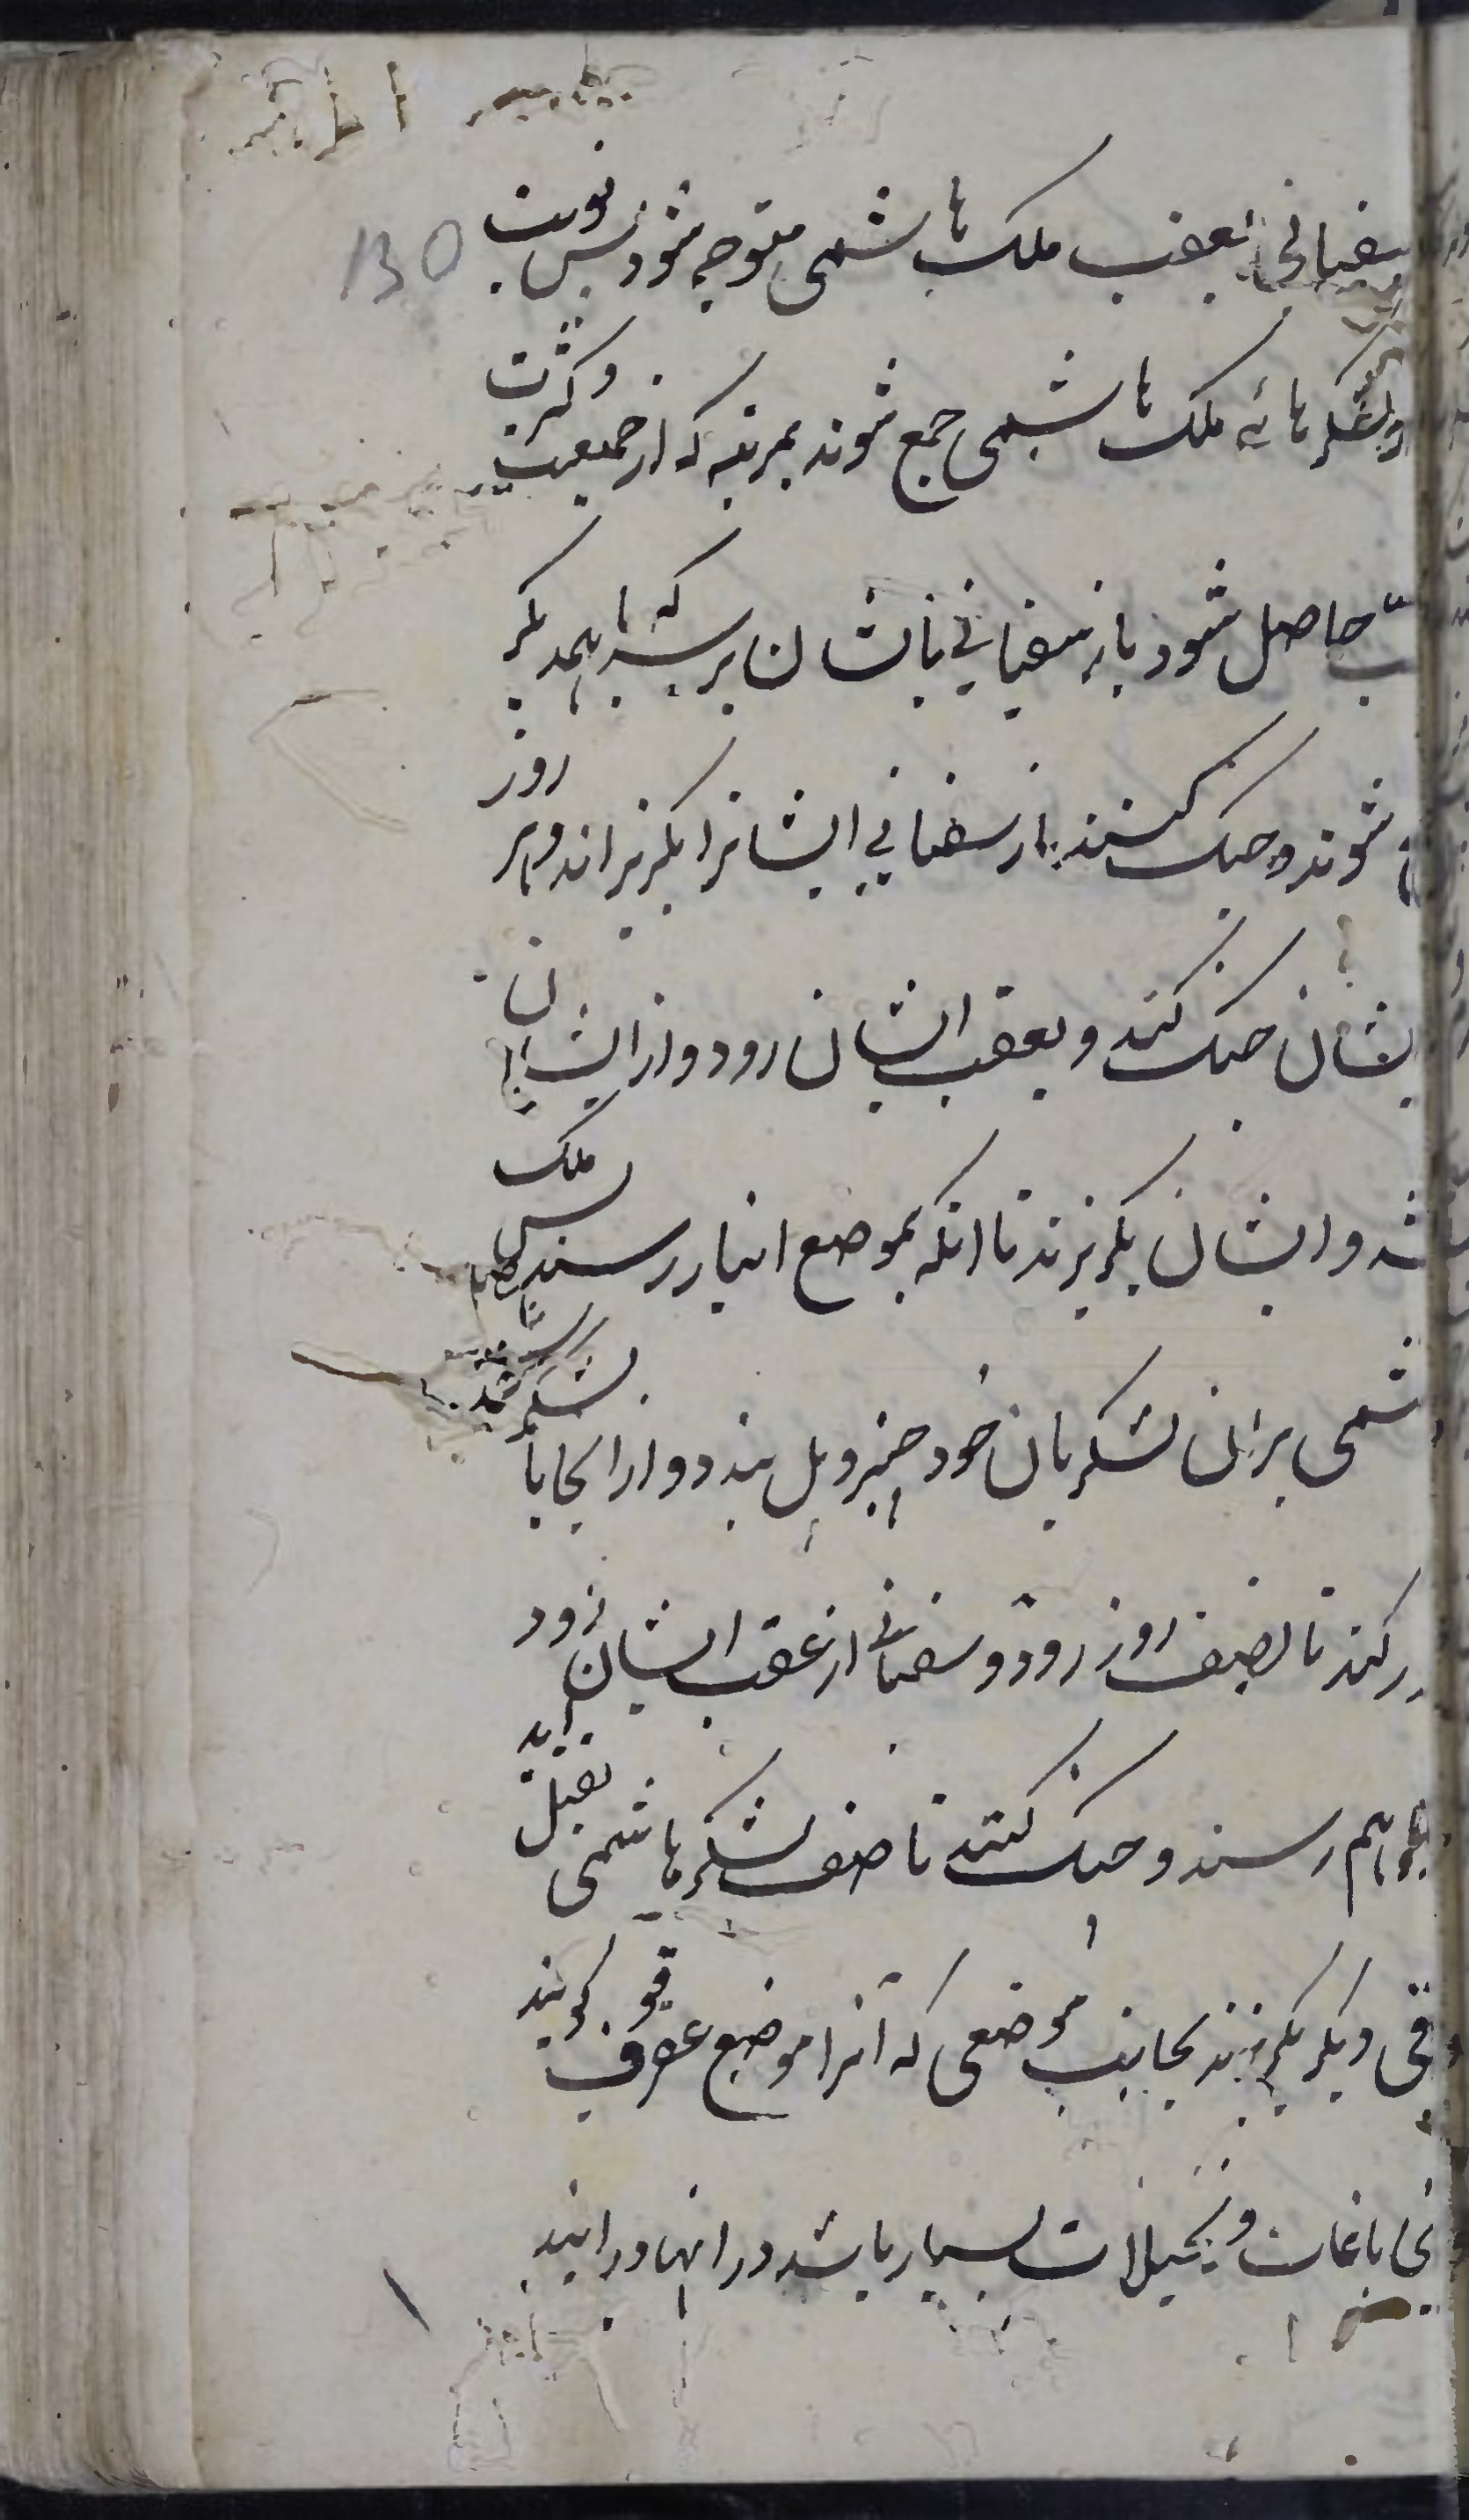 130
سفیانی بعقب ملک هاشمی متوجه شود پس نوبت
ولشکرهائه ملک هاشمی جمع شوند بمرتبه که از جمعیت وکثرت
حاصل شود باز سفیانی بایشان برسد که باهمدیکر
شوند و جنک کنند باز سفیانی ایشانرا بکریزاند و هر روز
یشان جنک کند و بعقب ایشان رود و از ایشان
شد و ایشان بکریزند تا انکه بموضع انبار رسند پس ملک
شمی بران لشکریان خود جسر و پل بندد و از انجا با لشکر
کند تا نصف روز رود و سفیانی از عقب ایشان زود
هم رسند و جنک کنند تا نصف لشکر هاشمی بقتل
قی دیکر بکریزند بجانب موضعی که آنرا موضع عقرقوف کویند
نجا باغات و نخیلات بسیار باشد در انها در ایند